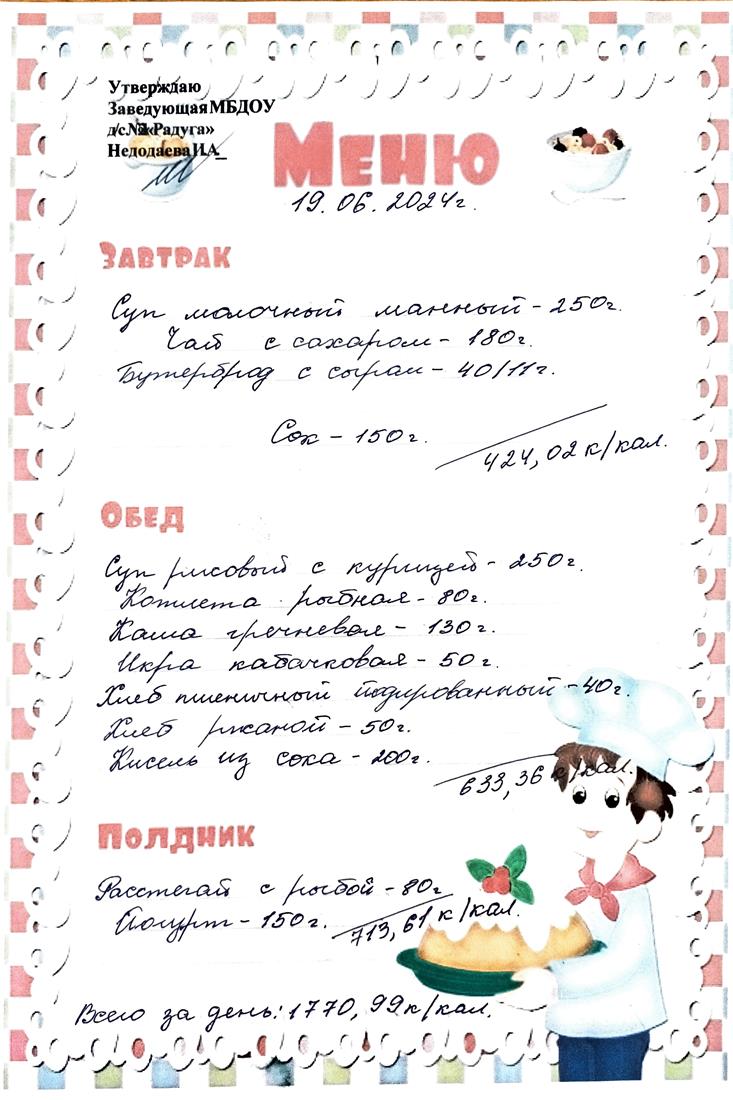 Утверждаю
Заведующая МБДОУ
«Радуга»
Недодаева И.А._
Меню
19.06.2024г.
Завтрак
Суп молочный манный - 250г.
Чай с сахаром - 180г.
Бутерброд с сыром - 40/11г.
Сок - 150г.
424,02 к/кал.
Обед
Суп рисовый с курицей - 250г.
Котлета рыбная - 80г.
Каша гречневая - 130г.
Икра кабачковая - 50г.
Хлеб пшеничный йодированный - 40г.
Хлеб ржаной - 50г.
Кисель из сока - 200г.
633,36 к/кал.
Полдник
Расстегай с рыбой - 80г
Йогурт - 150г.
713,61 к/кал.
Всего за день: 1770,99 к/кал.